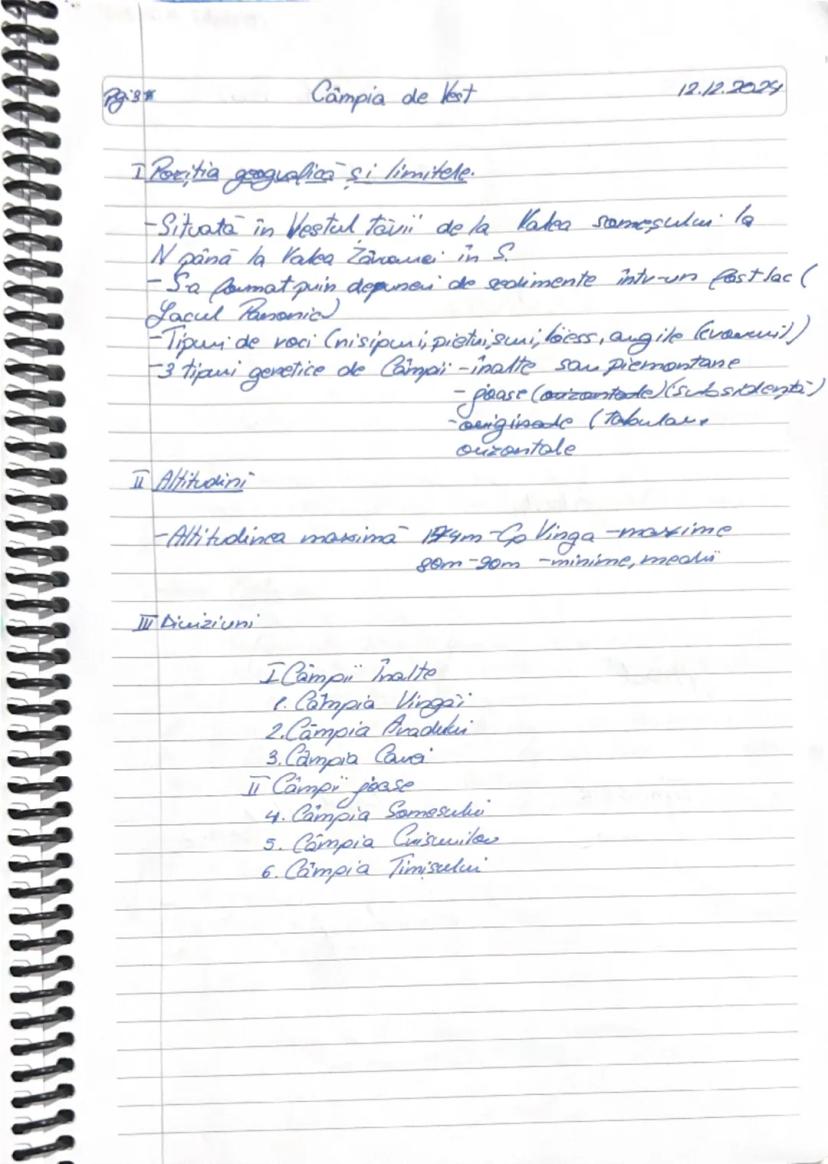 Câmpia de Vest 12.12.2024
I Poziția geografică și limitele.
-Situată în Vestul țării de la Valea someșului la
N până la Valea în S.
-S-a format prin depuneri de sedimente într-un fost lac (
Lacul Panonic)
-Tipuri de roci (nisipuri, pietrișuri, löess, argile
-3 tipuri genetice de Câmpii -înalte sau piemontane
-joase (orizontale) (subsidență)
(tabulare
orizontale
II Altitudini
-Altitudinea maximă 174m-Cp Vinga -maxime
80m-90m -minime, medii
III Diviziuni
I Câmpii Înalte
1. Câmpia Vingăi
2. Câmpia Aradului
3. Câmpia Carei
II Câmpii joase
4. Câmpia Someșului
5. Câmpia Crișurilor
6. Câmpia Timișului